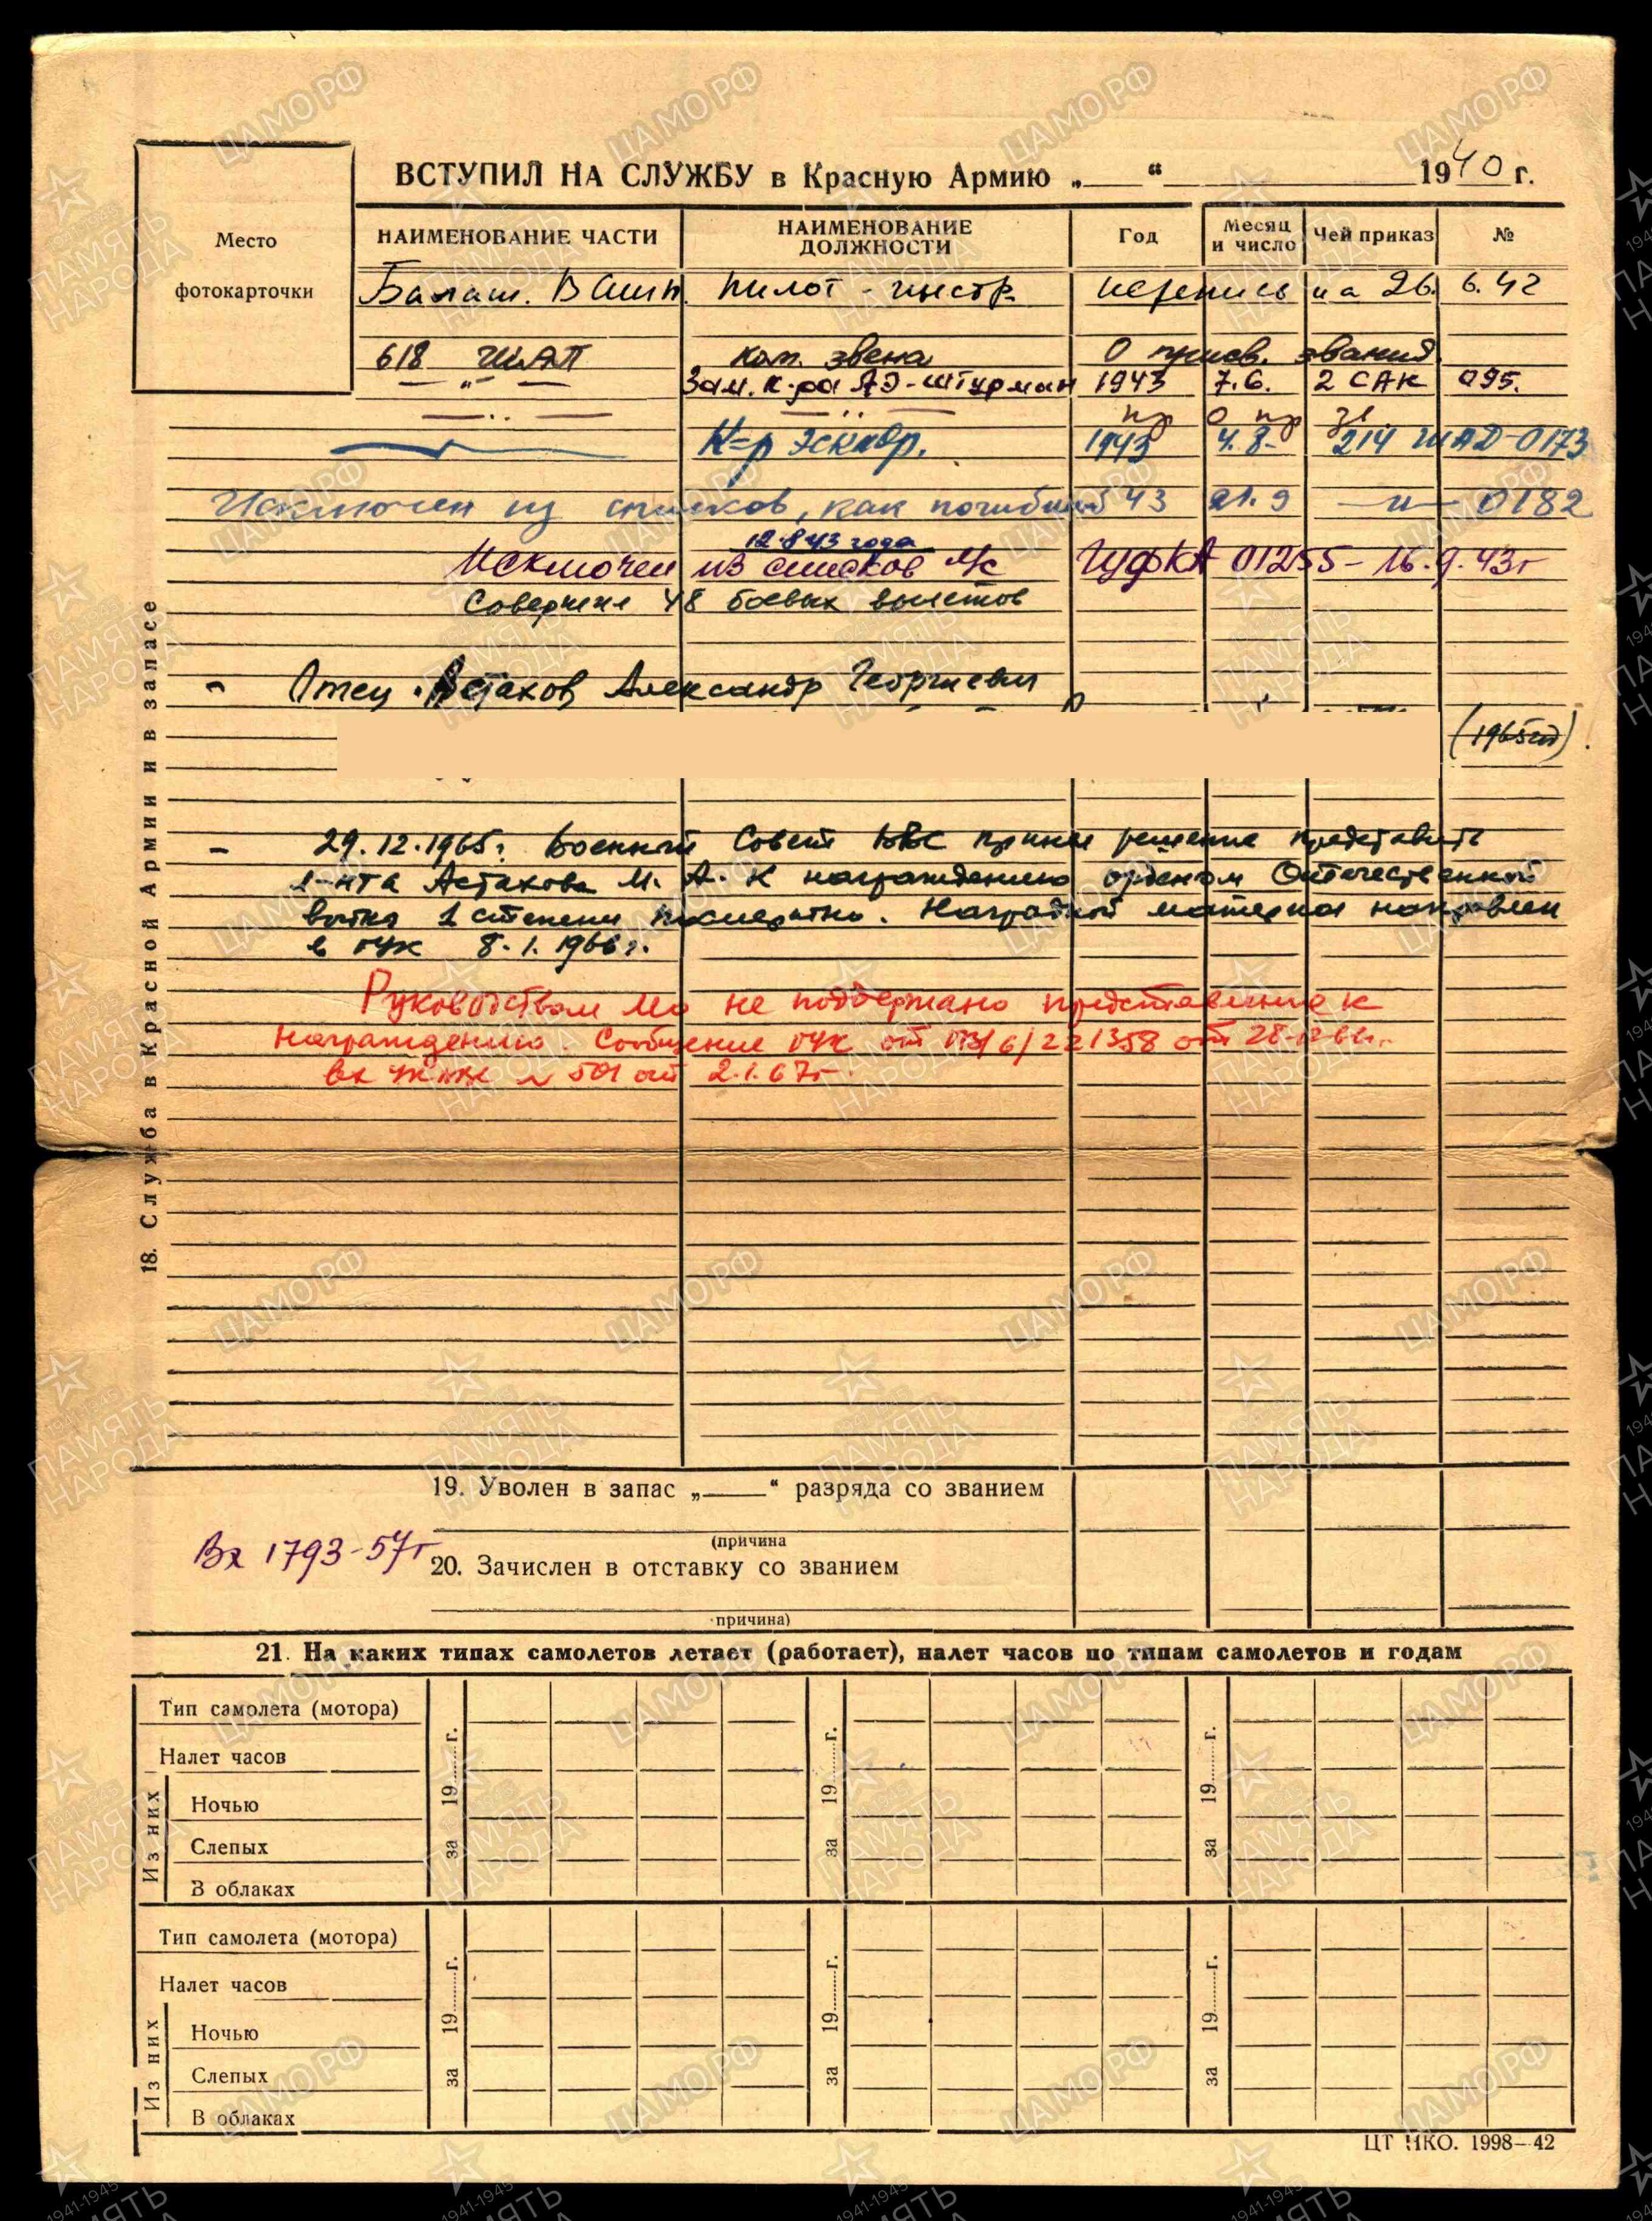 ВСТУПИЛ НА СЛУЖБУ в Красную Армию „ “ 1940 г.
Место фотокарточки
НАИМЕНОВАНИЕ ЧАСТИ НАИМЕНОВАНИЕ ДОЛЖНОСТИ Год Месяц и число Чей приказ №
Балаш. ВАШП. пилот-инстр. перепись на 26. 6. 42
618 ШАП ком. звена О присв. звания
— " — Зам. к-ра АЭ-штурман 1943 7.6. 2 САК 095.
— .. — — .. — пр О пр зв
К-р эскадр. 1943 4.8- 214 ШАД-0173
Исключен из списков, как погибший 43 21.9 —"— 0182
12.8 43 года
Исключен из списков л/с ГУФКА 01255 - 16.9.43г
Совершил 48 боевых вылетов
- Отец. Астахов Александр Георгиевич
(1965 г.)
- 29.12.1965г. Военный Совет ВВС принял решение представить
л-нта Астахова М. А. к награждению орденом Отечественной
войны 1 степени посмертно. Наградной материал направлен
в ГУК 8.1.1966г.
Руководством МО не поддержано представление к
награждению. Сообщение ГУК от 173/6/221358 от 28.12.66г.
вх № 501 от 2.1.67г.
18. Служба в Красной Армии и в запасе
19. Уволен в запас „ “ разряда со званием
(причина
Вх 1793-57г
20. Зачислен в отставку со званием
причина)
21. На каких типах самолетов летает (работает), налет часов по типам самолетов и годам
Тип самолета (мотора)
Налет часов
Из них
Ночью
Слепых
В облаках
за 19 г. за 19 г. за 19 г.
Тип самолета (мотора)
Налет часов
Из них
Ночью
Слепых
В облаках
за 19 г. за 19 г. за 19 г.
ЦТ НКО. 1998—42
ЦАМО.РФ
ПАМЯТЬ НАРОДА
1941-1945